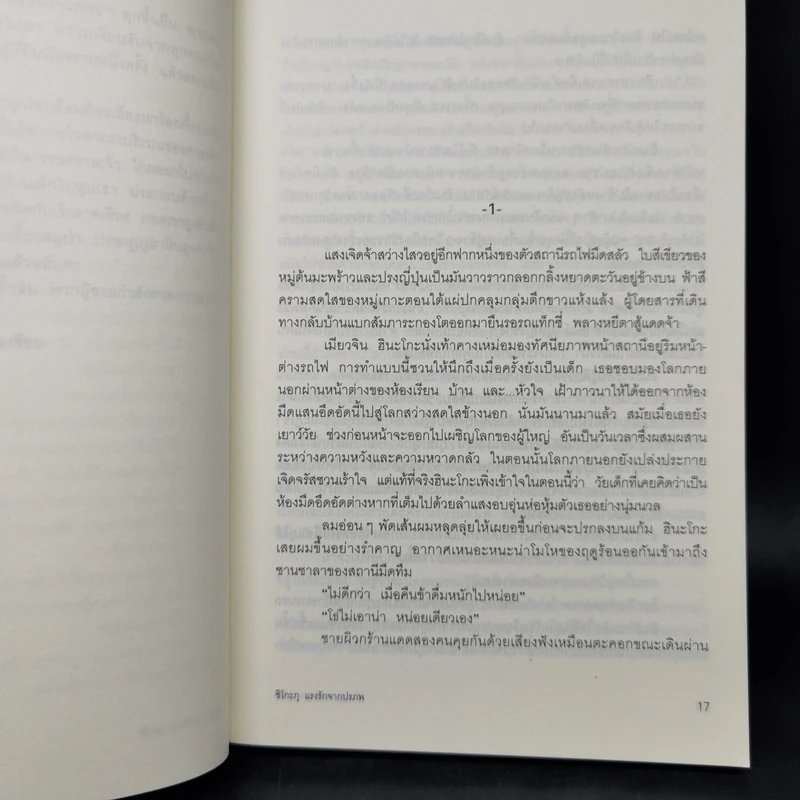 -1-
แสงเจิดจ้าสว่างไสวอยู่อีกฟากหนึ่งของตัวสถานีรถไฟมืดสลัว ใบสีเขียวของ
หมู่ต้นมะพร้าวและปรงญี่ปุ่นเป็นมันวาวราวกลอกกลิ้งหยาดตะวันอยู่ข้างบน ฟ้าสี
ครามสดใสของหมู่เกาะตอนใต้แผ่ปกคลุมกลุ่มตึกขาวแห้งแล้ง ผู้โดยสารที่เดิน
ทางกลับบ้านแบกสัมภาระกองโตออกมายืนรอรถแท็กซี่ พลางหยีตาสู้แดดจ้า
เมียวจิน ฮินะโกะนั่งเท้าคางเหม่อมองทัศนียภาพหน้าสถานีอยู่ริมหน้า-
ต่างรถไฟ การทำแบบนี้ชวนให้นึกถึงเมื่อครั้งยังเป็นเด็ก เธอชอบมองโลกภาย
นอกผ่านหน้าต่างของห้องเรียน บ้าน และ...หัวใจ เฝ้าภาวนาให้ได้ออกจากห้อง
มืดแสนอึดอัดนี้ไปสู่โลกสว่างสดใสข้างนอก นั่นมันนานมาแล้ว สมัยเมื่อเธอยัง
เยาว์วัย ช่วงก่อนหน้าจะออกไปเผชิญโลกของผู้ใหญ่ อันเป็นวันเวลาซึ่งผสมผสาน
ระหว่างความหวังและความหวาดกลัว ในตอนนั้นโลกภายนอกยังเปล่งประกาย
เจิดจรัสชวนเร้าใจ แต่แท้ที่จริงฮินะโกะเพิ่งเข้าใจในตอนนี้ว่า วัยเด็กที่เคยคิดว่าเป็น
ห้องมืดอึดอัดต่างหากที่เต็มไปด้วยลำแสงอบอุ่นห่อหุ้มตัวเธออย่างนุ่มนวล
ลมอ่อน ๆ พัดเส้นผมหลุดลุ่ยให้เผยอขึ้นก่อนจะปรกลงบนแก้ม ฮินะโกะ
เสยผมขึ้นอย่างรำคาญ อากาศเหนอะหนะน่าโมโหของฤดูร้อนออกันเข้ามาถึง
ชานชาลาของสถานีมืดทึม
"ไม่ดีกว่า เมื่อคืนข้าดื่มหนักไปหน่อย"
"โธ่ไม่เอาน่า หน่อยเดียวเอง"
ชายผิวกร้านแดดสองคนคุยกันด้วยเสียงฟังเหมือนตะคอกขณะเดินผ่าน
ชิโกะกุ แรงรักจากปรภพ
17